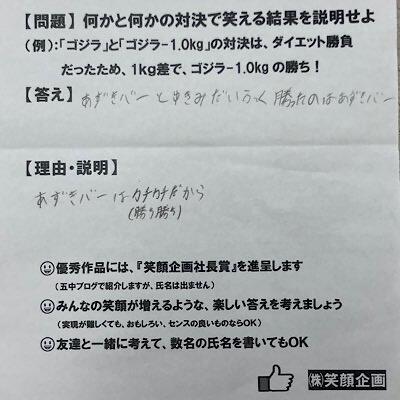 【問題】何かと何かの対決で笑える結果を説明せよ
(例):「ゴジラ」と「ゴジラ-1.0kg」の対決は、ダイエット勝負
だったため、1kg差で、ゴジラ-1.0kgの勝ち!
【答え】あずきバーとゆきみだいふく 勝ったのはあずきバー
【理由・説明】
あずきバーはカチカチだから
(勝ち勝ち)
優秀作品には、『笑顔企画社長賞』を進呈します
(五中ブログで紹介しますが、氏名は出ません)
みんなの笑顔が増えるような、楽しい答えを考えましょう
(実現が難しくても、おもしろい、センスの良いものならOK)
友達と一緒に考えて、数名の氏名を書いてもOK
㈱笑顔企画